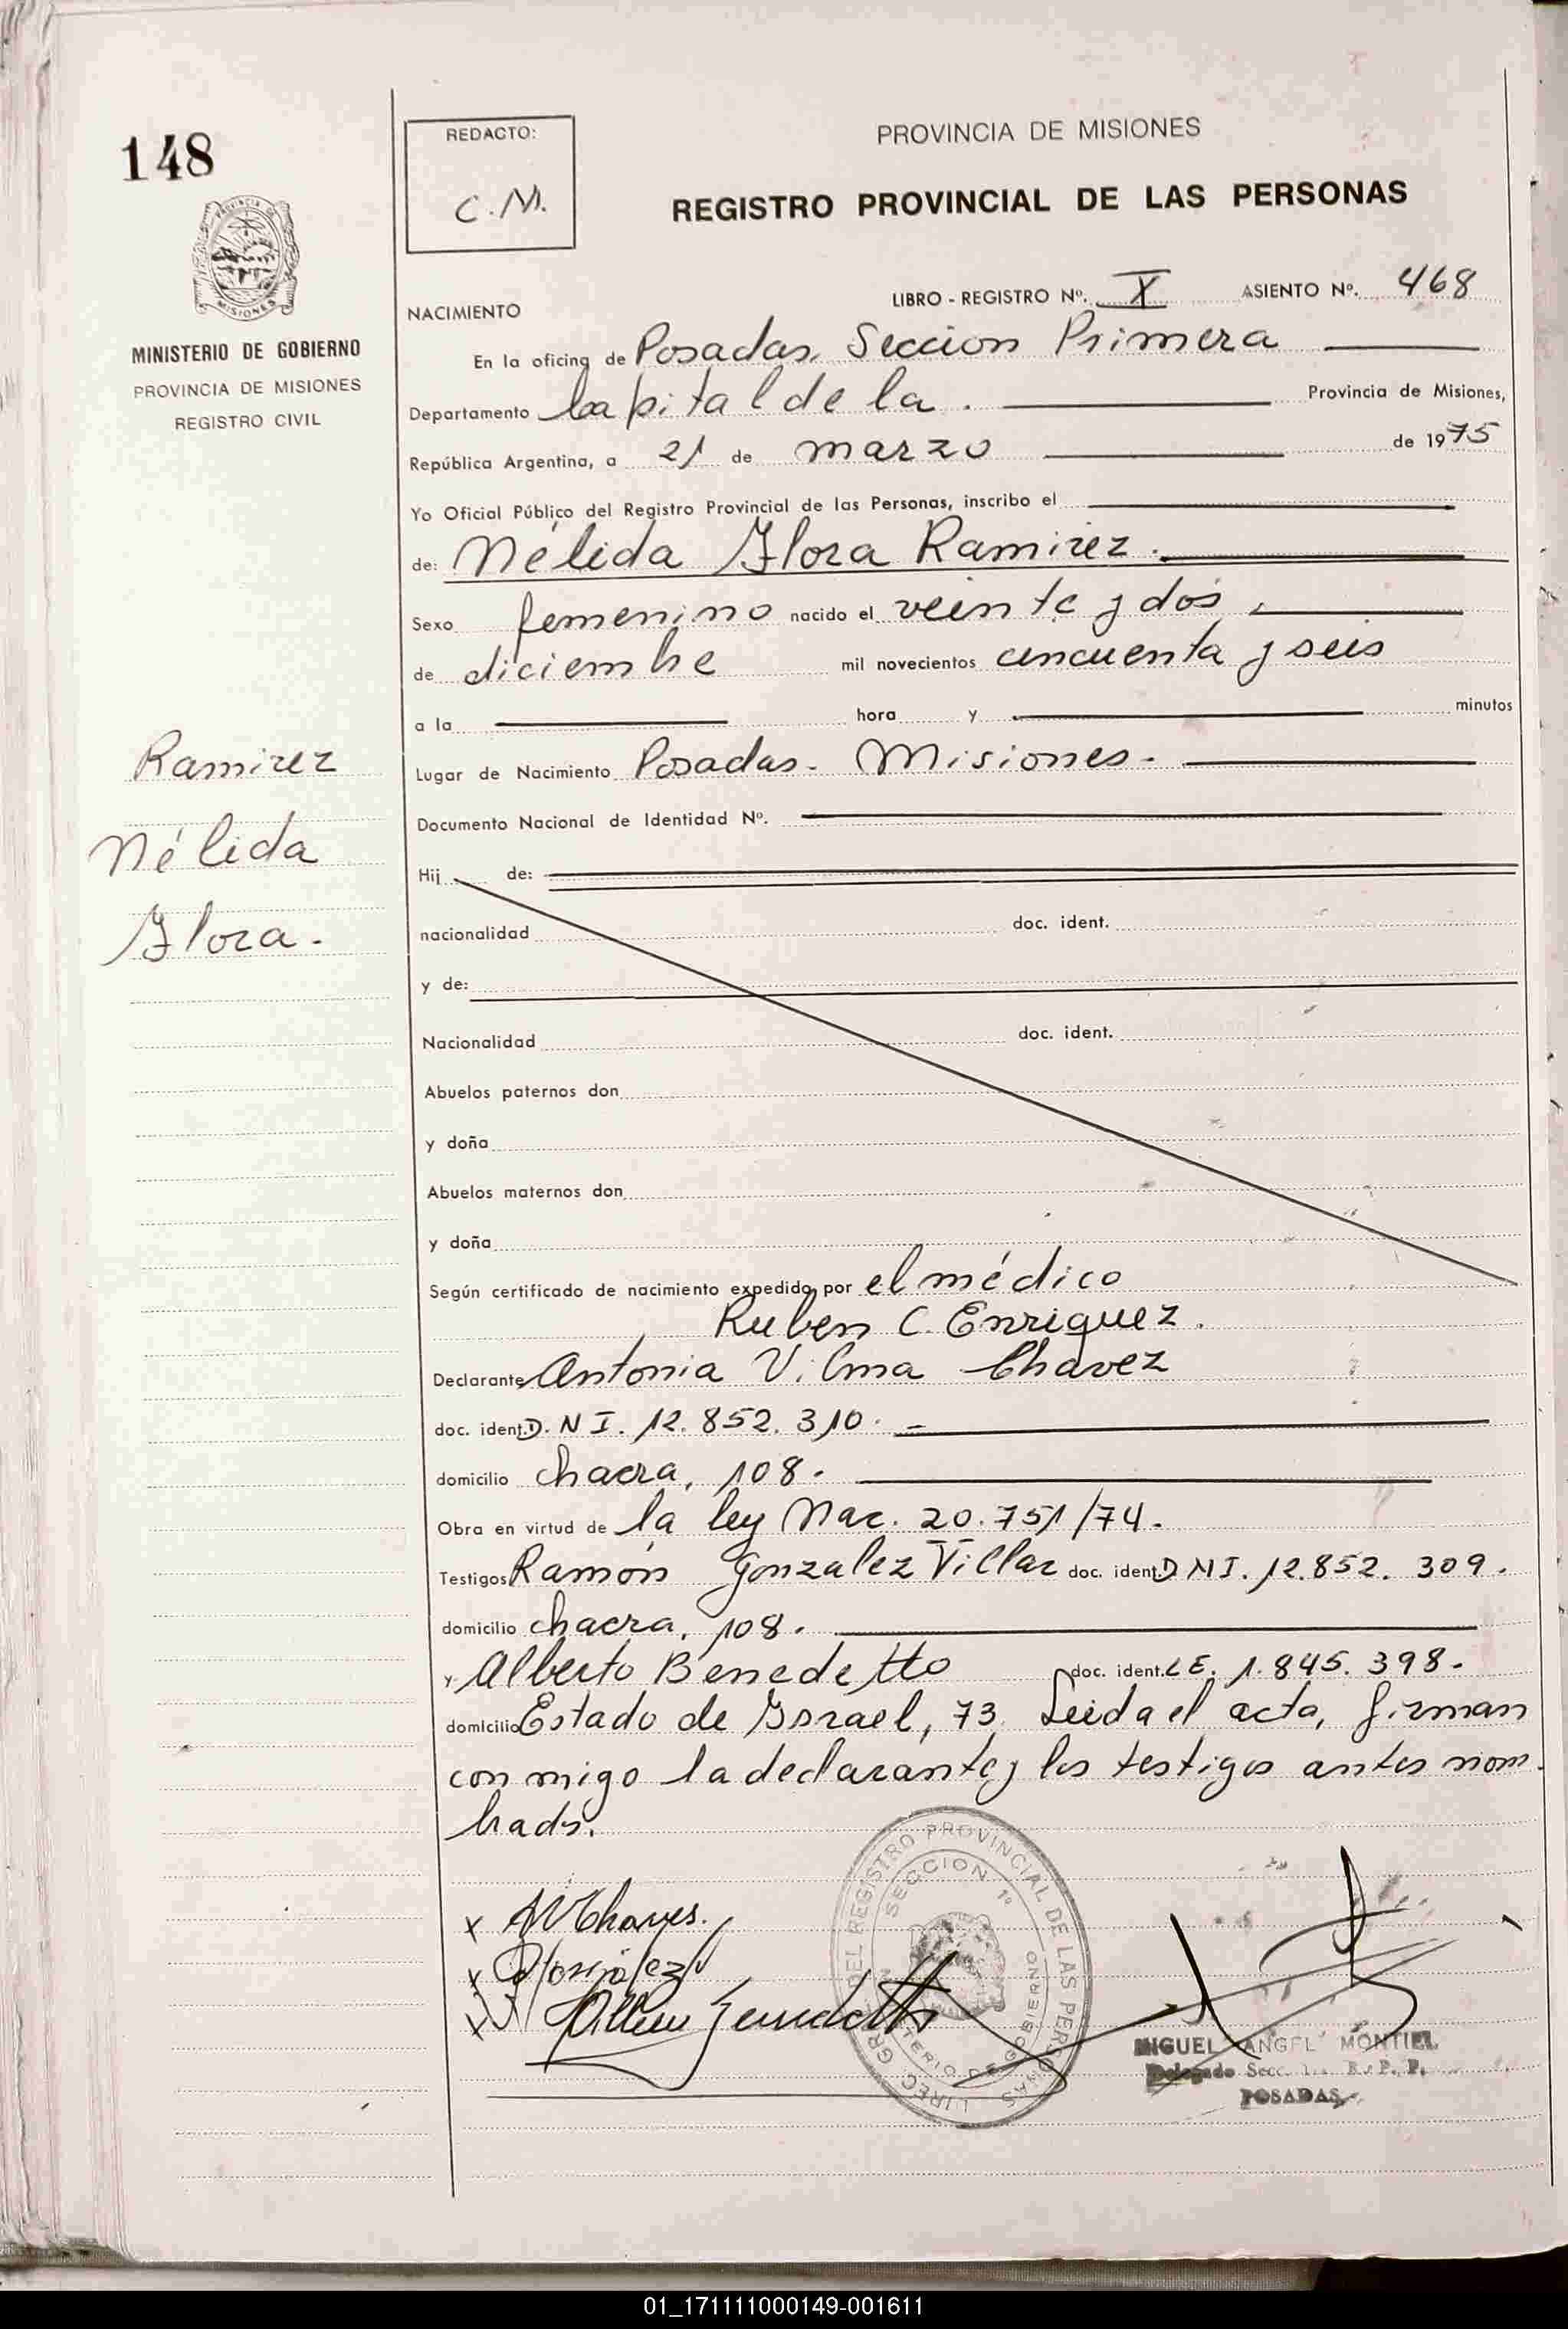 148
REDACTO:
C.M.
PROVINCIA DE MISIONES
REGISTRO PROVINCIAL DE LAS PERSONAS
PROVINCIA DE
MISIONES
MINISTERIO DE GOBIERNO
PROVINCIA DE MISIONES
REGISTRO CIVIL
NACIMIENTO
LIBRO - REGISTRO Nº. X ASIENTO Nº. 468
En la oficina de Posadas, Seccion Primera
Departamento Capital de la. Provincia de Misiones,
República Argentina, a 21 de marzo de 1975
Yo Oficial Público del Registro Provincial de las Personas, inscribo el
de: Nélida Flora Ramirez.
Sexo femenino nacido el veinte y dos
de diciembre mil novecientos cincuenta y seis
a la hora y minutos
Ramirez
Nélida
Flora.
Lugar de Nacimiento Posadas. Misiones.
Documento Nacional de Identidad Nº.
Hij de:
nacionalidad doc. ident.
y de:
Nacionalidad doc. ident.
Abuelos paternos don
y doña
Abuelos maternos don
y doña
Según certificado de nacimiento expedido por el médico
Ruben C. Enriquez.
Declarante Antonia Vilma Chavez
doc. ident. D.N I. 12.852.310.
domicilio chacra, 108.
Obra en virtud de la ley Nac. 20.751/74.
Testigos Ramón Gonzalez Villar doc. ident. D N I. 12.852.309.
domicilio chacra, 108.
y Alberto Benedetto doc. ident. L E. 1.845.398.
domicilio Estado de Israel, 73. Leida el acta, firman
con migo la declarante y los testigos antes nom-
brados.
x AVChaves.
x
x
DIREC. GRAL. DEL REGISTRO PROVINCIAL DE LAS PERSONAS
SECCION 1º
MINISTERIO DE GOBIERNO
MIGUEL ANGEL MONTIEL
Delegado Secc. 1ra. R. P. P.
POSADAS
01_171111000149-001611